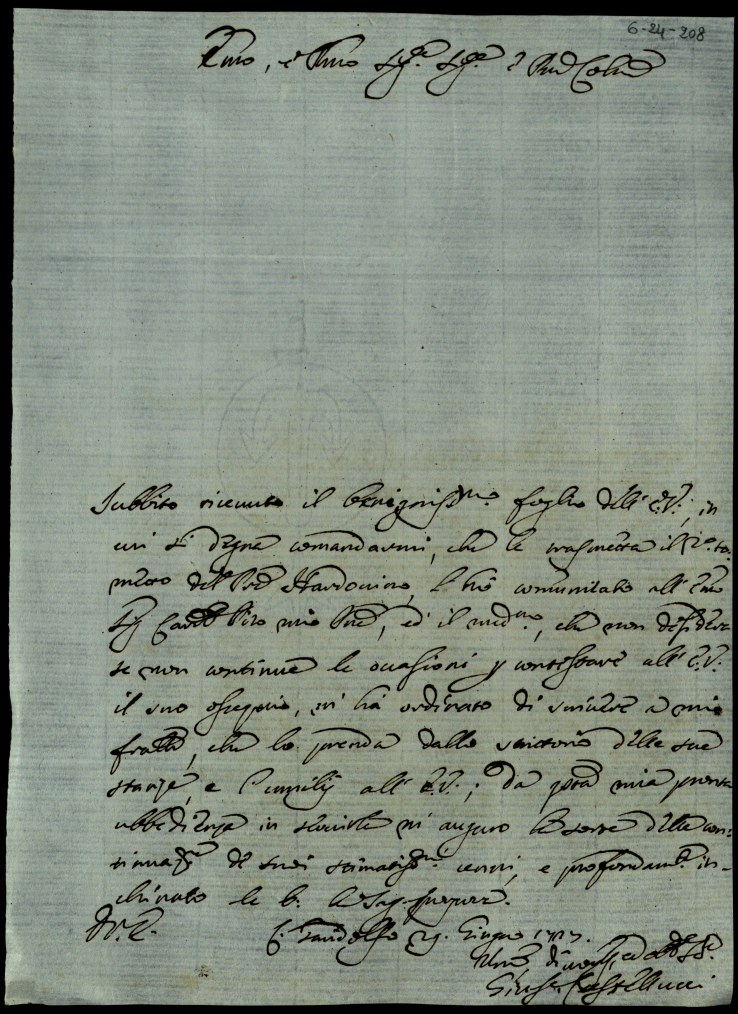 6-24-208
Emo, e Rmo Sigre Sigre e Pne Colmo
Subbito ricevuto il benignissmo foglio dell' E.V., in
cui si degna comandarmi, che le trasmetta il
del Pre Hardovino, l' hò comunicato all' Emo
Sig Card Pico mio Pne, ed il medmo, che non desidera
se non continue le occasioni p contestare all' E.V.
il suo ossequio, mi hà ordinato di scrivere a mio
frallo, che lo prenda dallo scrittorio delle sue
stanze, e l' umilij all' E.V.; Da qsta mia pronta
ubbedienza in servirla mi auguro la sorte della con-
tinuazne de suoi stimatissmi cenni, e profondamte in-
chinato le b. la Sag. Porpora.
Di V. E.
C. Gandolfo 29. Giugno 1727.
Umo, divmo, ed obblmo Sre
Gius. Castellucci